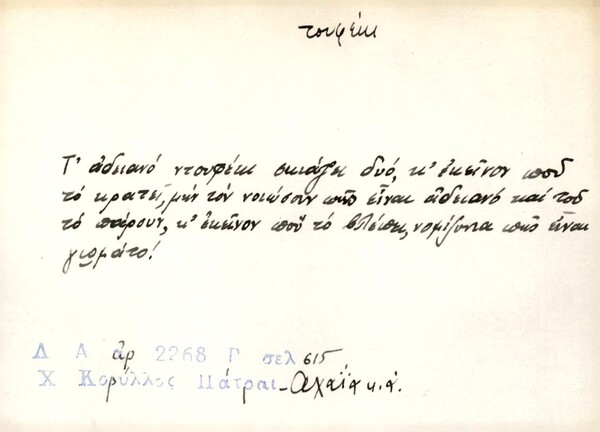 τουφέκι
Τ' ἀδειανό ντουφέκι σκιάζει δυό, κ' ἐκεῖνον ποὺ
τό κρατεῖ, μήν τόν νοιώσουν πῶς εἶναι ἀδειανό καί τοῦ
τό πάρουν, κ' ἐκεῖνον ποῦ τό βλέπει, νομίζοντα πῶς εἶναι
γιομάτο!
Δ Α ἀρ 2268 Γ σελ 615
Χ Κορύλλος Πάτραι - Ἀχαΐα κ.ἀ.